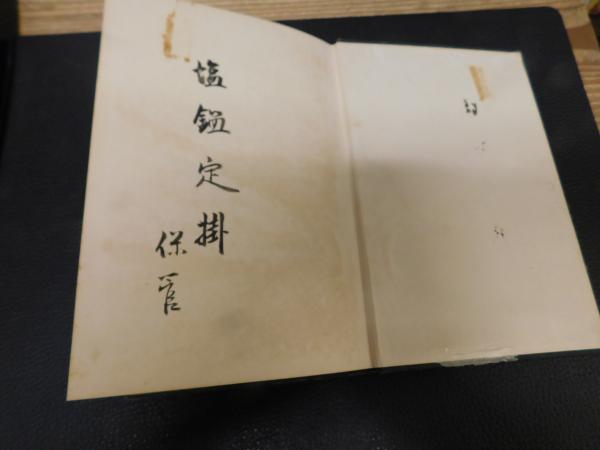 塩鑑定掛
保管